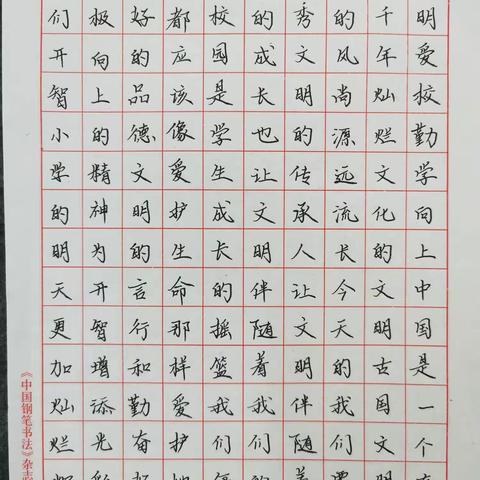 明爱校勤学向上中国是一个
千年灿烂文化的文明古国文明
的风尚源远流长今天的我们要
秀文明的传承人让文明伴随着
的成长也让文明伴随着我们的
校园是学生成长的摇篮我们
都应该像爱护生命那样爱护她
好的品德文明的言行和勤奋好
极向上的精神为开智增添光彩
们开智小学的明天更加灿烂辉
《中国钢笔书法》杂志